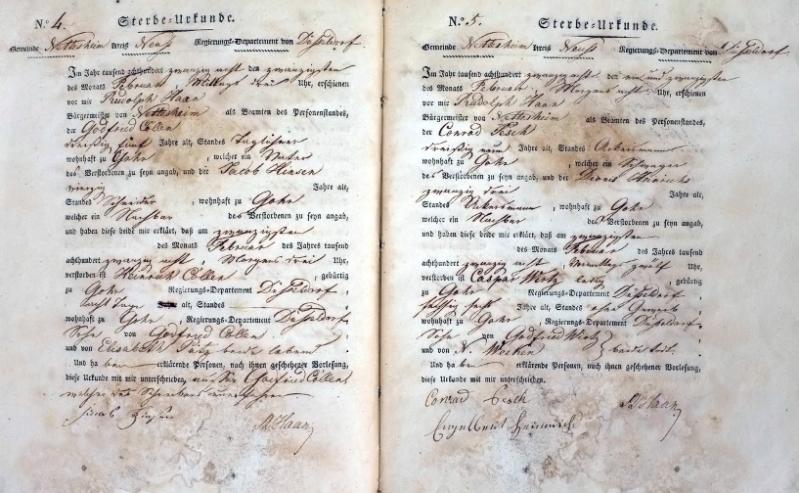 N.o 4. Sterbe-Urkunde.
Gemeinde Nettesheim Kreis Neuss Regierungs-Departement von Düsseldorf.
Im Jahr tausend achthundert zwanzig acht den zwanzigsten
des Monats Februar Mittags drei Uhr, erschienen
vor mir Rudolph Haan
Bürgermeister von Nettesheim als Beamten des Personenstandes,
der Godfried Cöllen
dreißig fünf Jahre alt, Standes Taglöhner
wohnhaft zu Gohr, welcher ein Vater
des Verstorbenen zu seyn angab, und der Jacob Hinsen
vierzig Jahre alt,
Standes Schneider, wohnhaft zu Gohr
welcher ein Nachbar des Verstorbenen zu seyn angab,
und haben diese beide mir erklärt, daß am zwanzigsten
des Monats Februar des Jahres tausend
achthundert zwanzig acht, Morgens drei Uhr,
verstorben ist Heinrich Cöllen, gebürtig
zu Gohr Regierungs-Departement Düsseldorf,
acht Tage alt, Standes
wohnhaft zu Gohr Regierungs-Departement Düsseldorf
Sohn von Godfried Cöllen
und von Elisabeth beide lebend
Und haben erklärende Personen, nach ihnen geschehener Vorlesung,
diese Urkunde mit mir unterschrieben, Godfried Cöllen
welcher des Schreibens unerfahren
R Haan
N.o 5. Sterbe-Urkunde.
Gemeinde Nettesheim Kreis Neuss Regierungs-Departement von Düsseldorf.
Im Jahr tausend achthundert zwanzig acht den ein und zwanzigsten
des Monats Februar Morgens acht Uhr, erschienen
vor mir Rudolph Haan
Bürgermeister von Nettesheim als Beamten des Personenstandes,
der Conrad Esch
dreißig neun Jahre alt, Standes Ackersmann
wohnhaft zu Gohr, welcher ein Schwager
des Verstorbenen zu seyn angab, und der
zwanzig drei Jahre alt,
Standes Ackersmann, wohnhaft zu Gohr
welcher ein Nachbar des Verstorbenen zu seyn angab,
und haben diese beide mir erklärt, daß am zwanzigsten
des Monats Februar des Jahres tausend
achthundert zwanzig acht, zwölf Uhr,
verstorben ist Caspar Wirtz ledig, gebürtig
zu Gohr Regierungs-Departement Düsseldorf
fünfzig sechs Jahre alt, Standes ohne Gewerb
wohnhaft zu Gohr, Regierungs-Departement Düsseldorf
Sohn von Godfried Wirtz
und von N. beide todt.
Und haben erklärende Personen, nach ihnen geschehener Vorlesung,
diese Urkunde mit mir unterschrieben.
Conrad Esch R Haan
Engelbert Heinrichs